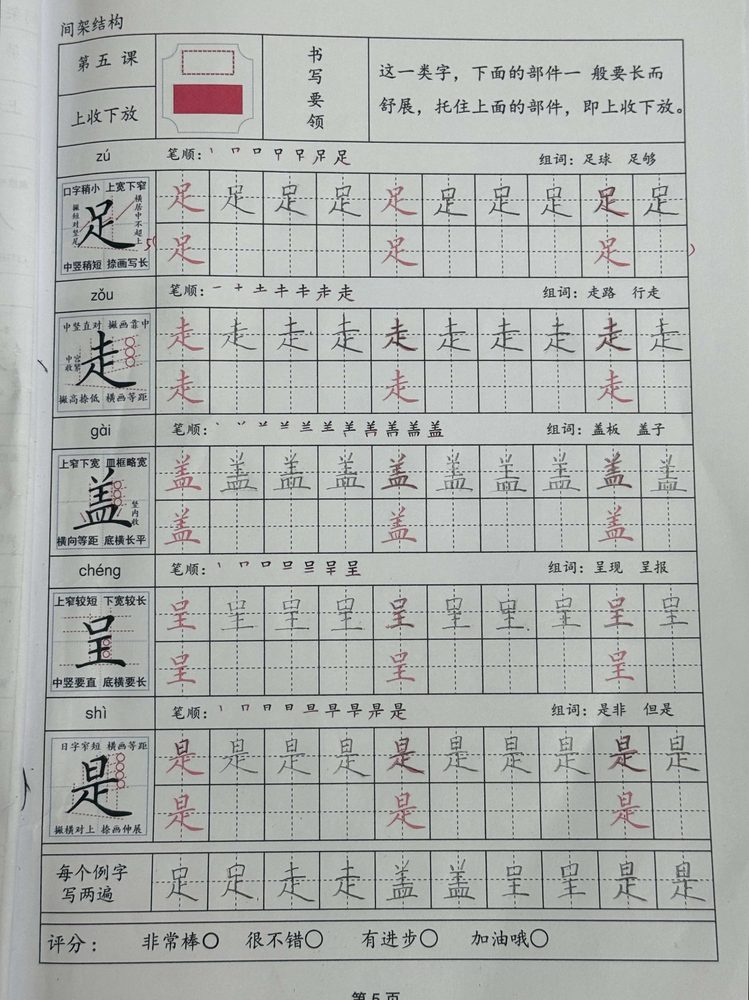 间架结构
第五课
上收下放
书写要领
这一类字，下面的部件一 般要长而
舒展，托住上面的部件，即上收下放。
zú
笔顺：丨 𠃍 口 𠮛 足
组词：足球 足够
口字稍小 上宽下窄
撇短对竖尾
横居中不超上
足
中竖稍短 捺画写长
足 足 足 足 足 足 足 足 足 足
足 足 足
zǒu
笔顺：一 十 土 走
组词：走路 行走
中竖直对 撇画靠中
中宫收紧
走
撇高捺低 横画等距
走 走 走 走 走 走 走 走 走 走
走 走 走
gài
笔顺：盖
组词：盖板 盖子
上窄下宽 皿框略宽
竖内收
盖
横向等距 底横长平
盖 盖 盖 盖 盖 盖 盖 盖 盖 盖
盖 盖 盖
chéng
笔顺：丨 口 呈
组词：呈现 呈报
上窄较短 下宽较长
呈
中竖要直 底横要长
呈 呈 呈 呈 呈 呈 呈 呈 呈 呈
呈 呈 呈
shì
笔顺：丨 日 旦 早 是
组词：是非 但是
日字窄短 横画等距
是
撇横对上 捺画伸展
是 是 是 是 是 是 是 是 是 是
是 是 是
每个例字
写两遍
足 足 走 走 盖 盖 呈 呈 是 是
评分： 非常棒○ 很不错○ 有进步○ 加油哦○
第 5 页